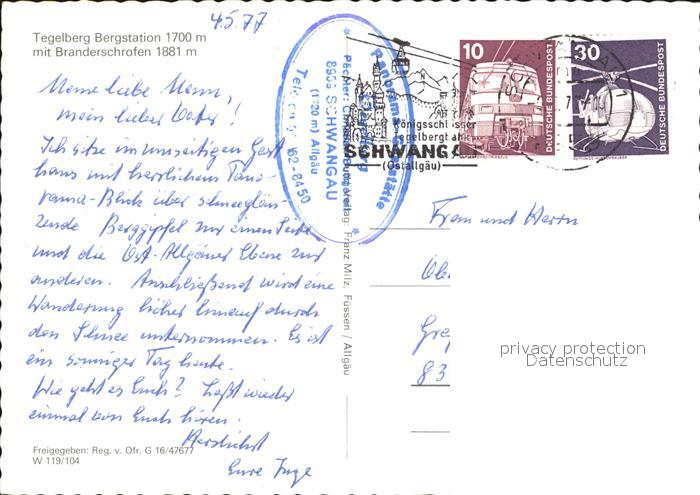 4.5.77
Tegelberg Bergstation 1700 m
mit Branderschrofen 1881 m
Meine liebe Mami,
mein lieber Vater!
Ich sitze im umseitigen Gast
haus mit herrlichem Pano-
rama-Blick über schneeglän-
zende Berggipfel zur einen Seite
und die Ost-Allgäuer Ebene zur
anderen. Anschließend wird eine
Wanderung höher hinauf durch
den Schnee unternommen. Es ist
ein sonniger Tag heute.
Wie geht es Euch? Laßt wieder
einmal von Euch hören.
Herzlichst
Eure Inge
Freigegeben: Reg. v. Ofr. G 16/47677
W 119/104
Panorama-Gaststätte
8959 SCHWANGAU
(1700 m) Allgäu
Verlag: Franz Milz, Füssen / Allgäu
Königsschlösser
Tegelbergbahn
SCHWANGAU
(Ostallgäu)
10
DEUTSCHE BUNDESPOST
30
DEUTSCHE BUNDESPOST
Frau und Herrn
83
privacy protection
Datenschutz